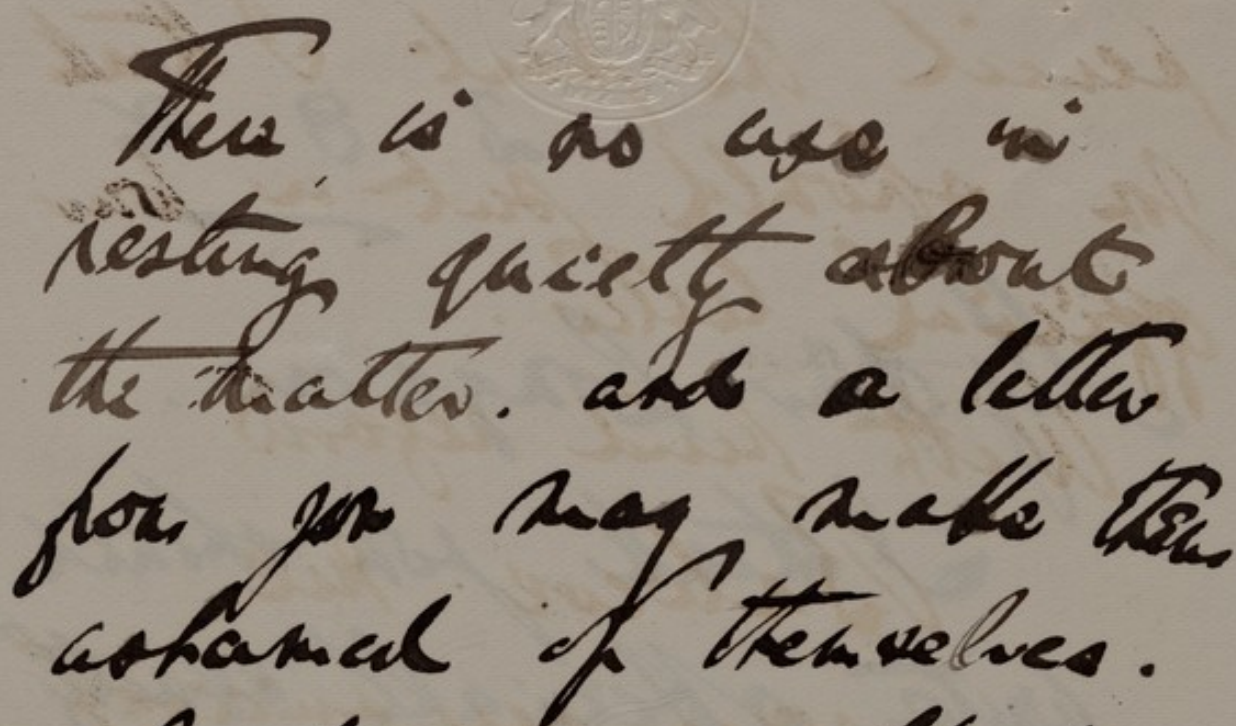 There is no use in
resting quietly about
the matter. and a letter
from you may make them
ashamed of themselves.